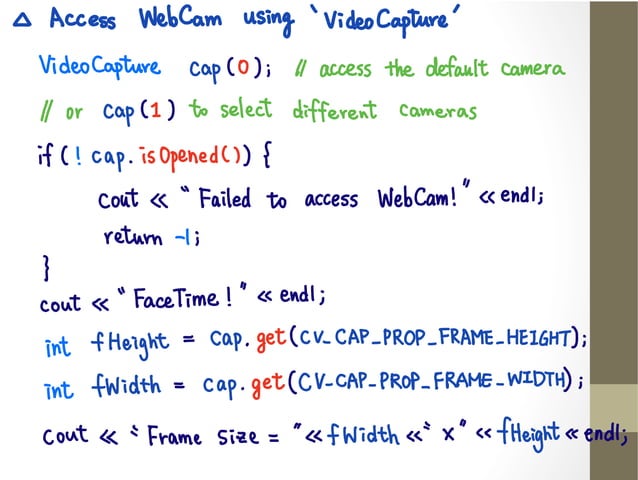 △ Access WebCam using ‘VideoCapture’
VideoCapture cap(0); // access the default camera
// or cap(1) to select different cameras
if (! cap.isOpened()) {
cout << "Failed to access WebCam!" << endl;
return -1;
}
cout << "FaceTime!" << endl;
int fHeight = cap.get(CV_CAP_PROP_FRAME_HEIGHT);
int fWidth = cap.get(CV_CAP_PROP_FRAME_WIDTH);
cout << "Frame size = " << fWidth << "x" << fHeight << endl;